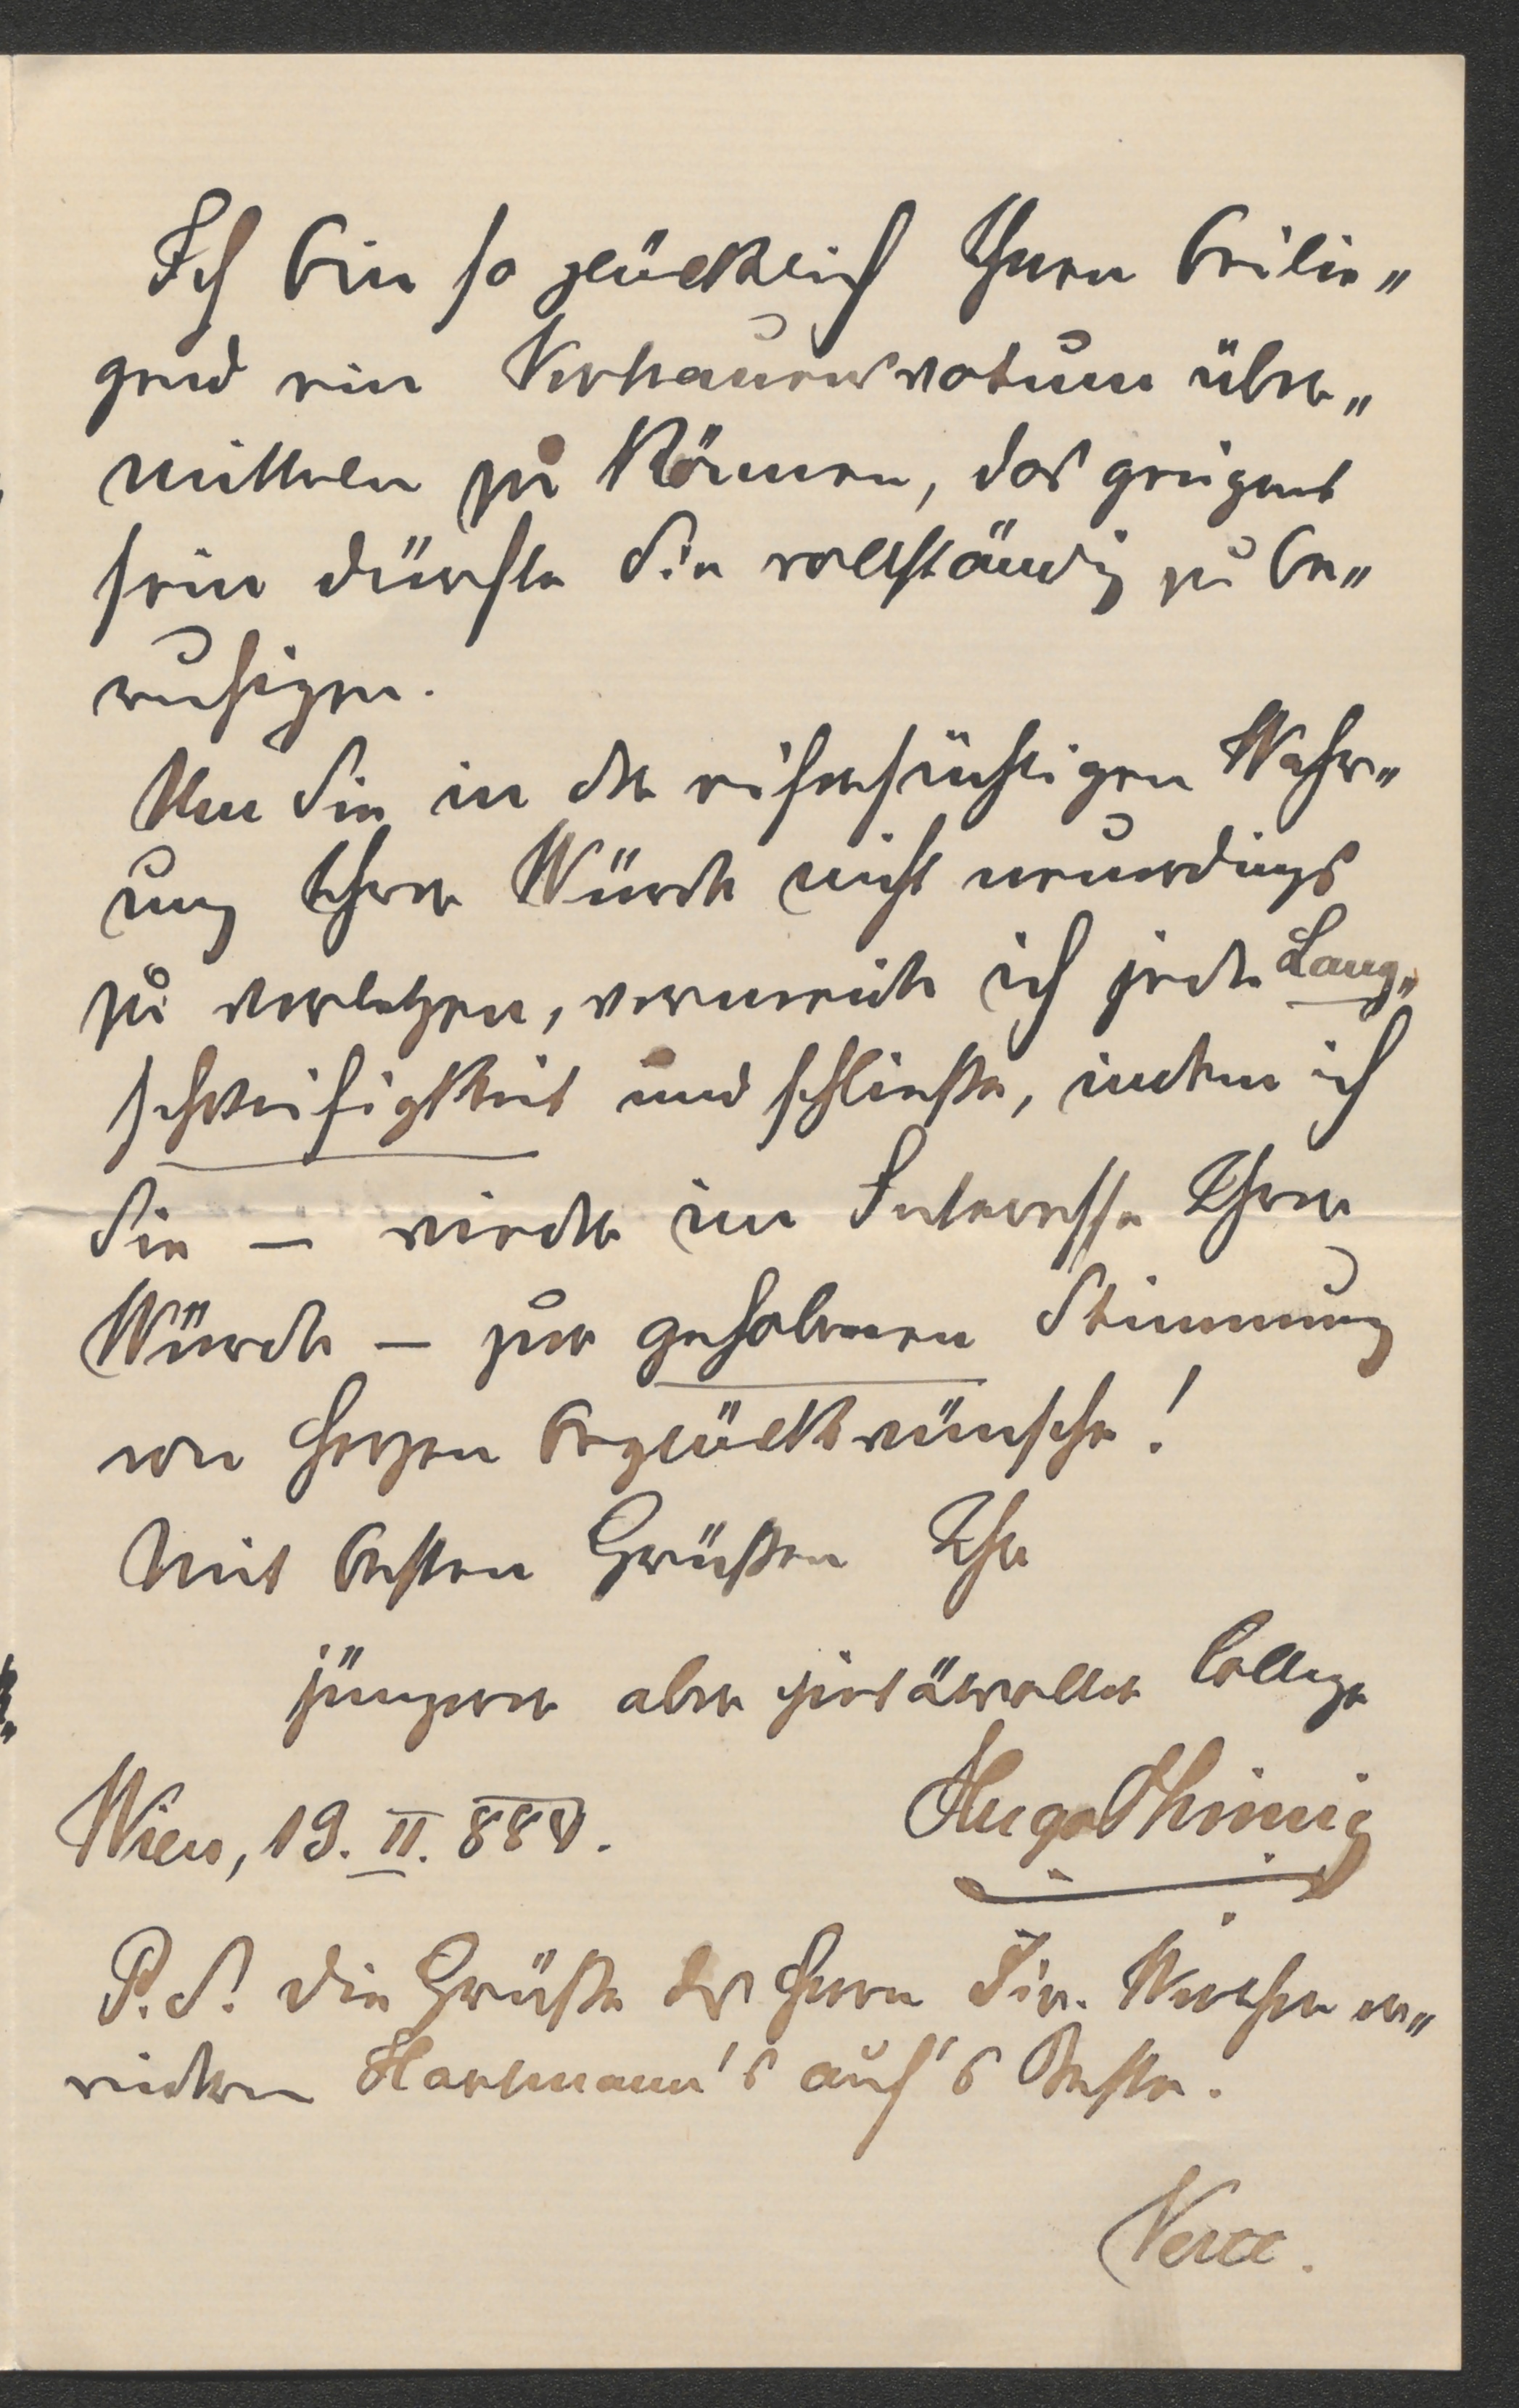 Ich bin so glücklich Ihnen beilie„
gend ein Vertrauensvotum über„
mitteln zu können, das geeignet
sein dürfte Sie vollständig zu be„
ruhigen.
Um Sie in der eifersüchtigen Wahr„
ung Ihrer Würde nicht neuerdings
zu verletzen, vermeide ich jede Lang„
schweifigkeit und schließe, indem ich
Sie – wieder im Interesse Ihrer
Würde – zur gehobenen Stimmung
von Herzen beglückwünsche!
Mit besten Grüßen Ihr
jüngerer aber pietätvoller College
Wien, 19. II. 888.
Hugo Thimig
P.S. Die Grüße des Herrn Dir. Werther er„
widern Hartmann's auf's Beste.